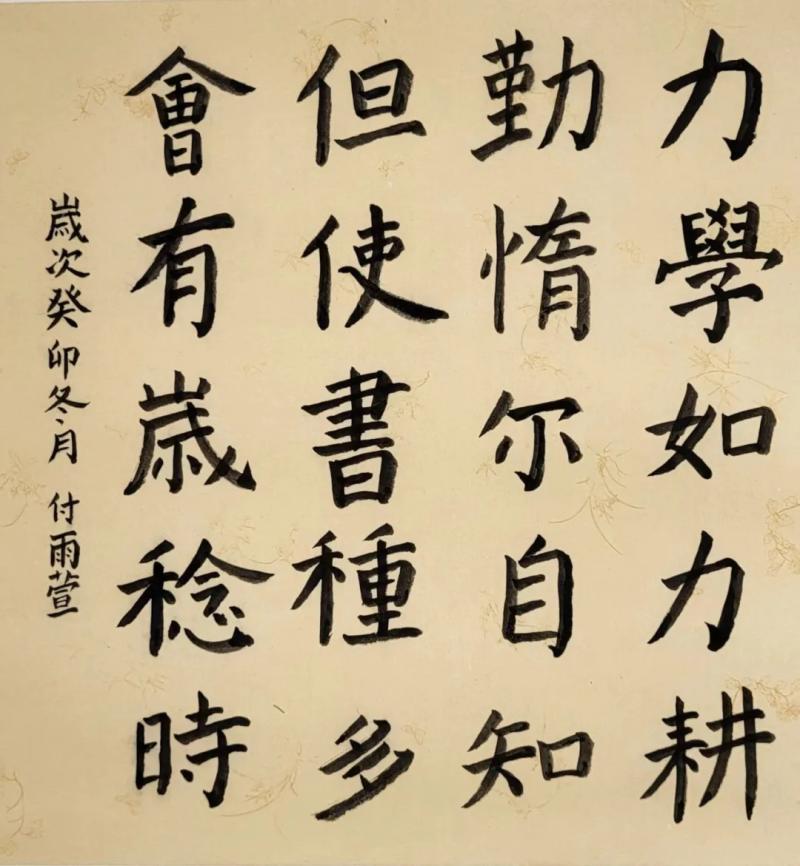 力學如力耕
勤惰尔自知
但使書種多
會有歲稔時
歲次癸卯冬月 付雨萱